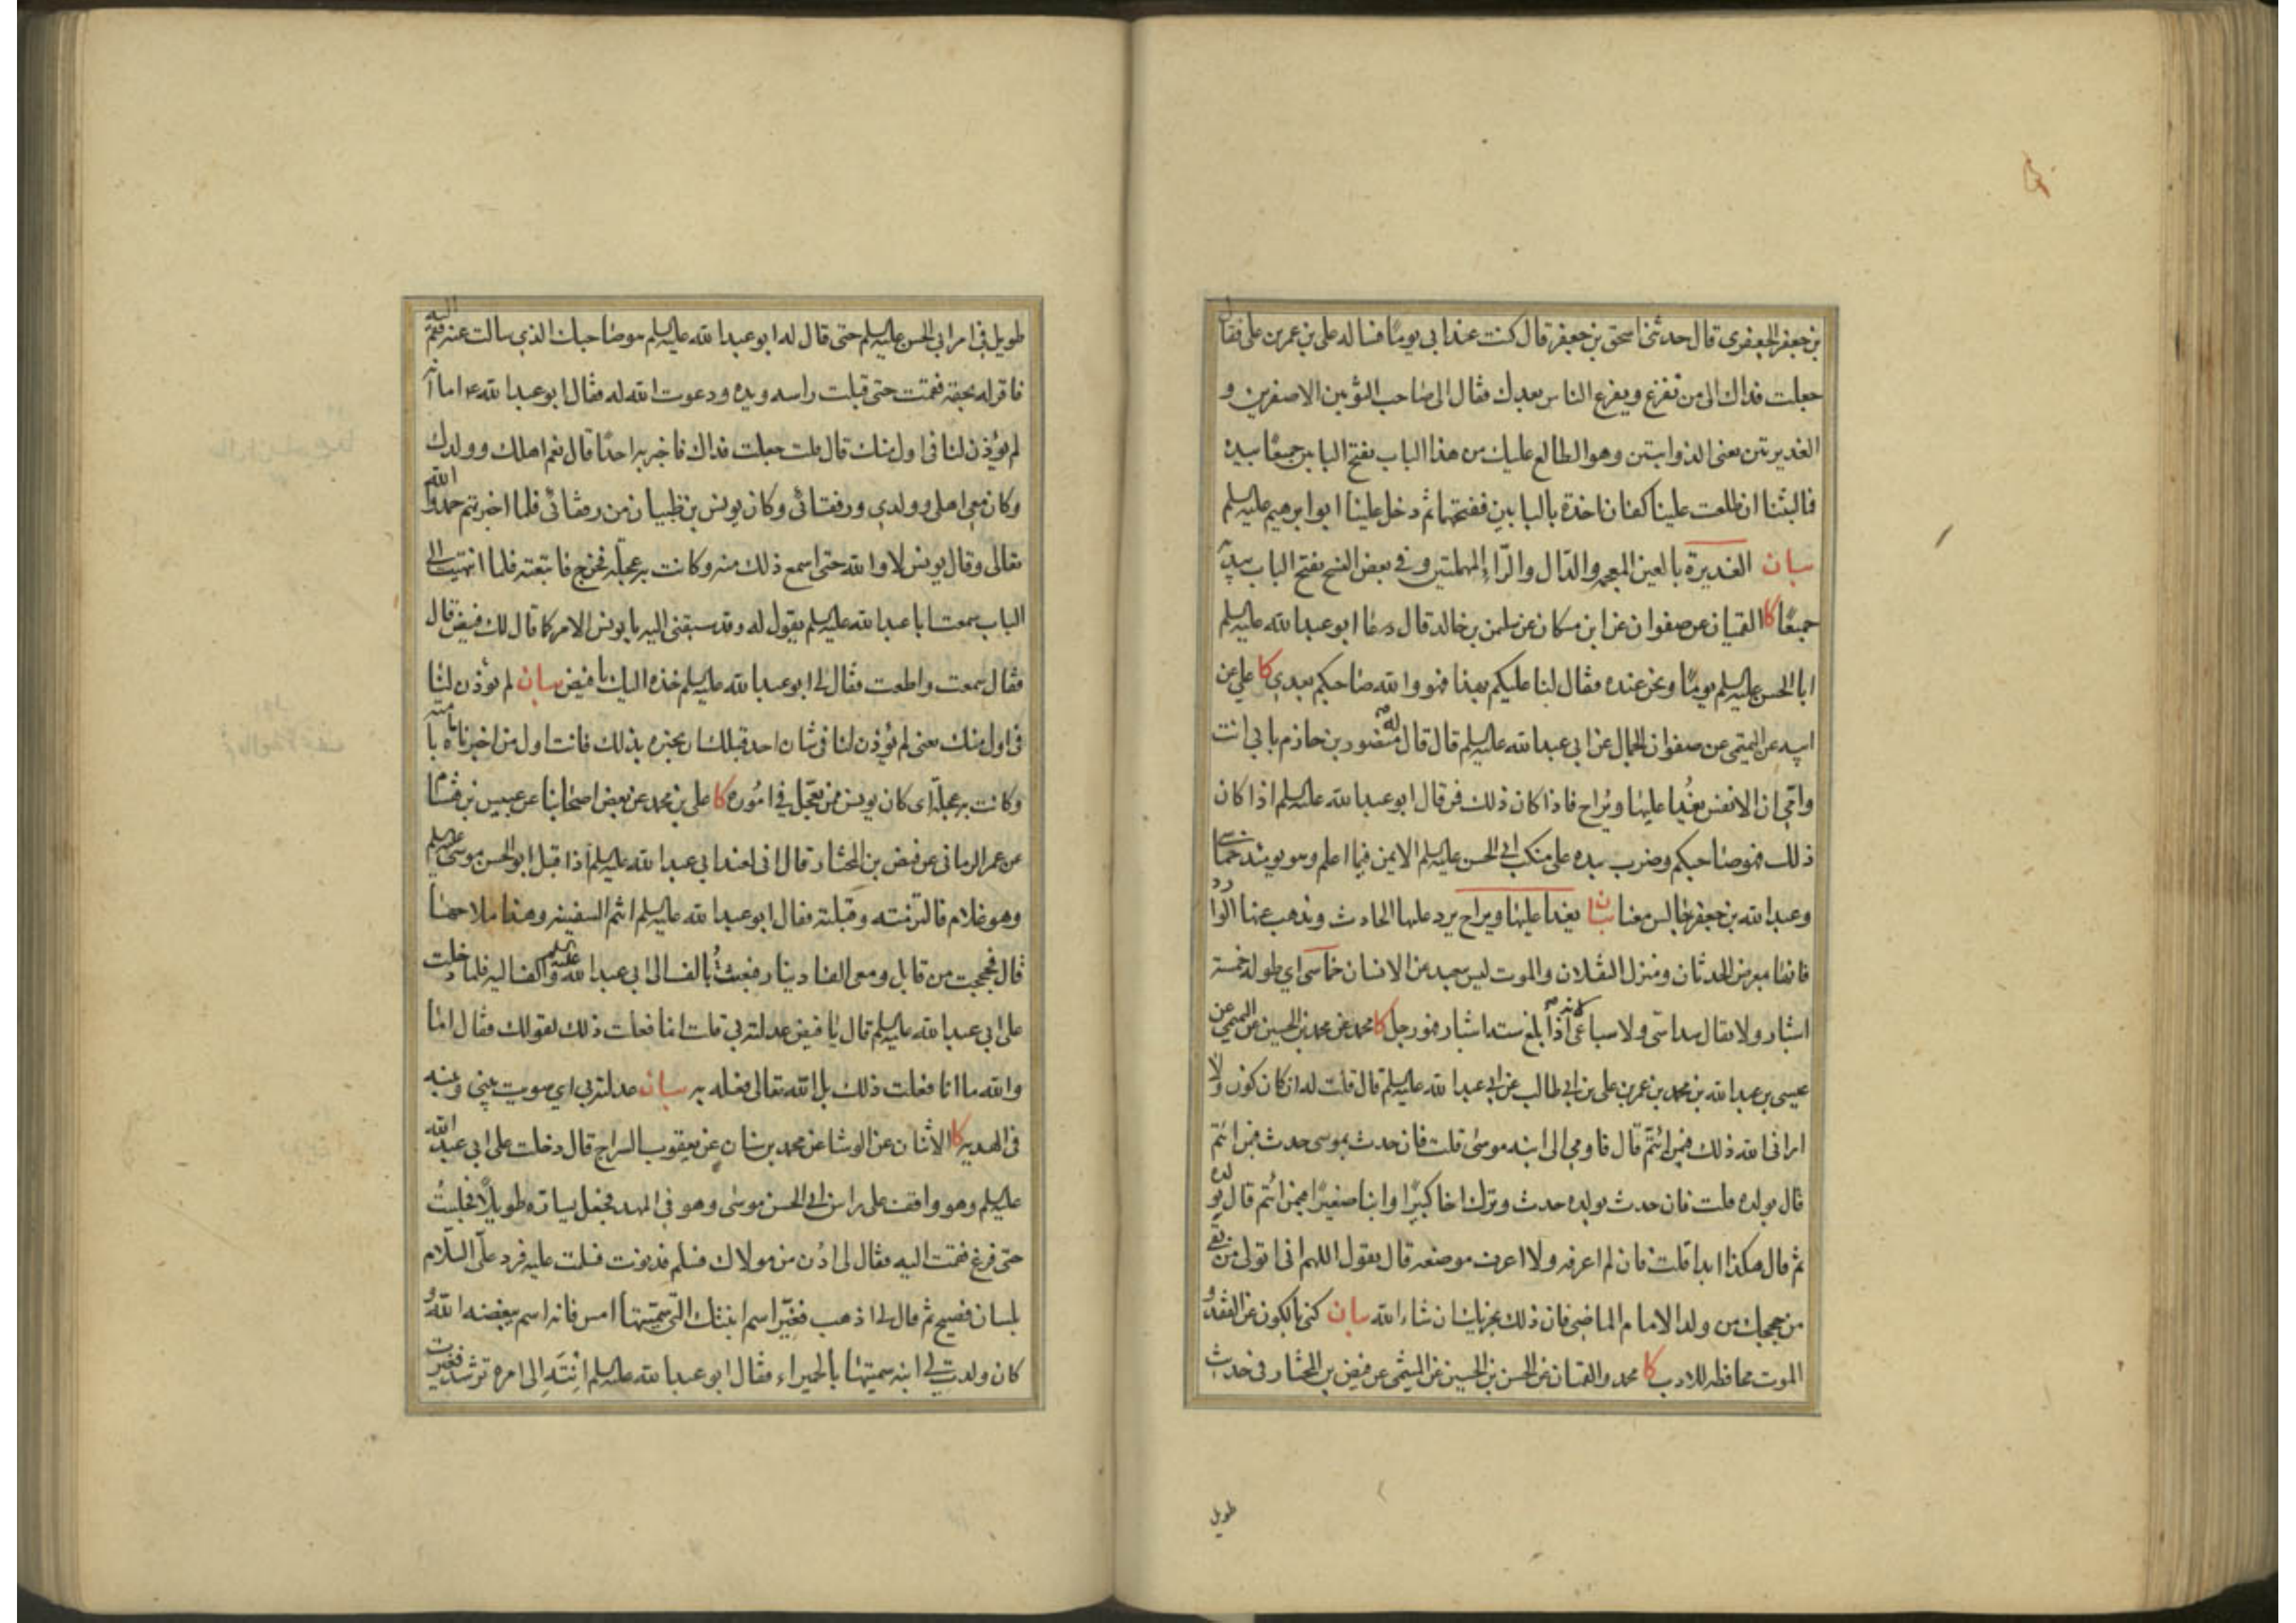 بن جعفر الجعفري قال حدثني اسحق بن جعفر قال كنت عند ابي يومًا فساله علي بن عمر بن علي فقال
جعلت فداك الى من نفزع ويفزع الناس بعدك فقال الى صاحب الثوبين الاصفرين و
الغديرتين يعني الذوابتين وهو الطالع عليك من هذا الباب يفتح البابين جميعًا بيده
فما لبثنا ان طلعت علينا كفان اخذة بالبابين ففتحهما ثم دخل علينا ابو ابرهيم عليه السلم
بيان الغديرة بالغين المعجمه والدال والرّاء المهملتين وفي بعض النسخ يفتح الباب بيديه
جميعًا كا القميان عن صفوان عن ابن مسكان عن سليمن بن خالد قال دعا ابو عبد الله عليه السلم
ابا الحسن عليه السلم يومًا ونحن عنده فقال لنا عليكم بهذا فهو والله صاحبكم بعدي كا علي عن
ابيه عن التميمي عن صفوان الجمال عن ابي عبد الله عليه السلم قال قال له منصور بن حازم بابي انت
وامّي ان الانفس يغدا عليها ويُراح فاذا كان ذلك فمن قال ابو عبد الله عليه السلم اذا كان
ذلك فهو صاحبكم وضرب بيده على منكب ابي الحسن عليه السلم الايمن فيما اعلم وهو يومئذ خماسي
وعبد الله بن جعفر جالس معنا بيان يغدا عليها ويراح يرد عليها الحادث ويذهب عنها الروا
فانها معرض الحدثان ومنزل الثقلان والموت ليس ببعيد من الانسان خماسي اي طوله خمسة
اشبار ولا يقال سداسي ولا سباعي لانه اذا بلغ ستة اشبار فهو رجل كا محمد عن محمد بن الحسين عن التميمي عن
عيسى بن عبد الله بن محمد بن عمر بن علي بن ابي طالب عن ابي عبد الله عليه السلم قال قلت له ان كان كون ولا
اراني الله ذلك فبمن ائتمّ قال فاومى الى ابنه موسى قلت فان حدث بموسى حدث فبمن ائتمّ
قال بولده قلت فان حدث بولده حدث وترك اخا كبيرًا وابنا صغيرًا فبمن ائتم قال بولده
ثم قال هكذا ابدا قلت فان لم اعرفه ولا اعرف موضعه قال يقول اللهم اني اتولى من بقي
من حججك من ولد الامام الماضي فان ذلك يجزيك ان شاء الله بيان كنى بالكون عن الفقد و
الموت محافظه للادب كا محمد والقميان عن الحسن بن الحسين عن الميثمي عن فيض بن المختار في حديث
طويل
طويل في امر ابي الحسن عليه السلم حتى قال له ابو عبد الله عليه السلم هو صاحبك الذي سالت عنه فقم اليه
فاقر له بحقه فقمت حتى قبلت راسه ويده ودعوت الله له فقال ابو عبد الله ع اما انه
لم يؤذن لنا في اول منك قال قلت جعلت فداك فاخبر به احدًا قال نعم اهلك وولدك
وكان معي اهلي وولدي ورفقائي وكان يونس بن ظبيان من رفقائي فلما اخبرتهم حمدوا الله
تعالى وقال يونس لا والله حتى اسمع ذلك منه وكانت به عجلة فخرج فاتبعته فلما انتهيت الى
الباب سمعت ابا عبد الله عليه السلم يقول له وقد سبقني اليه يا يونس الامر كما قال لك فيض قال
فقال سمعت واطعت فقال لي ابو عبد الله عليه السلم خذه اليك يا فيض بيان لم يؤذن لنا
في اول منك يعني لم يؤذن لنا في شان احد قبلك ان يخبره بذلك فانت اول من اخبرناه بامامته
وكانت به عجلة اي كان يونس ممن يعجّل في اموره كا علي بن محمد عن بعض اصحابنا عن عبيس بن هشام
عن عمر الرماني عن فيض بن المختار قال اني لعند ابي عبد الله عليه السلم اذ اقبل ابو الحسن موسى عليه السلم
وهو غلام فالتزمته وقبلته فقال ابو عبد الله عليه السلم انتم السفينه وهذا ملاحها
قال فحججت من قابل ومعي الفا دينار فبعثتُ بالف الى ابي عبد الله عليه السلم والف اليه فلما دخلت
على ابي عبد الله عليه السلم قال يا فيض عدلته بي قلت انما فعلت ذلك لقولك فقال اما
والله ما انا فعلت ذلك بل الله تعالى فعله به بيان عدلته بي اي سويت بيني وبينه
في الهدية كا الاثنان عن الوشا عن محمد بن سنان عن يعقوب السراج قال دخلت على ابي عبد الله
عليه السلم وهو واقف على راس ابي الحسن موسى وهو في المهد فجعل يساره طويلًا فجلستُ
حتى فرغ فقمت اليه فقال لي ادن من مولاك فسلم فدنوت فسلمت عليه فرد عليّ السلام
بلسان فصيح ثم قال لي اذهب فغيّر اسم ابنتك التي سمّيتها امس فانه اسم يبغضه الله و
كان ولدت لي ابنه سميتها بالحميراء فقال ابو عبد الله عليه السلم انته الى امره ترشد فغيرت